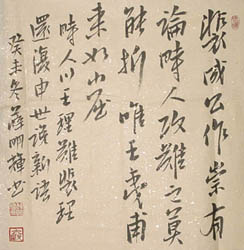 裴成公作崇有
論時人攻難之莫
能折唯王夷甫
来如小屈
時人以王理難裴理
還復申世说新语
癸未冬薛明辉书